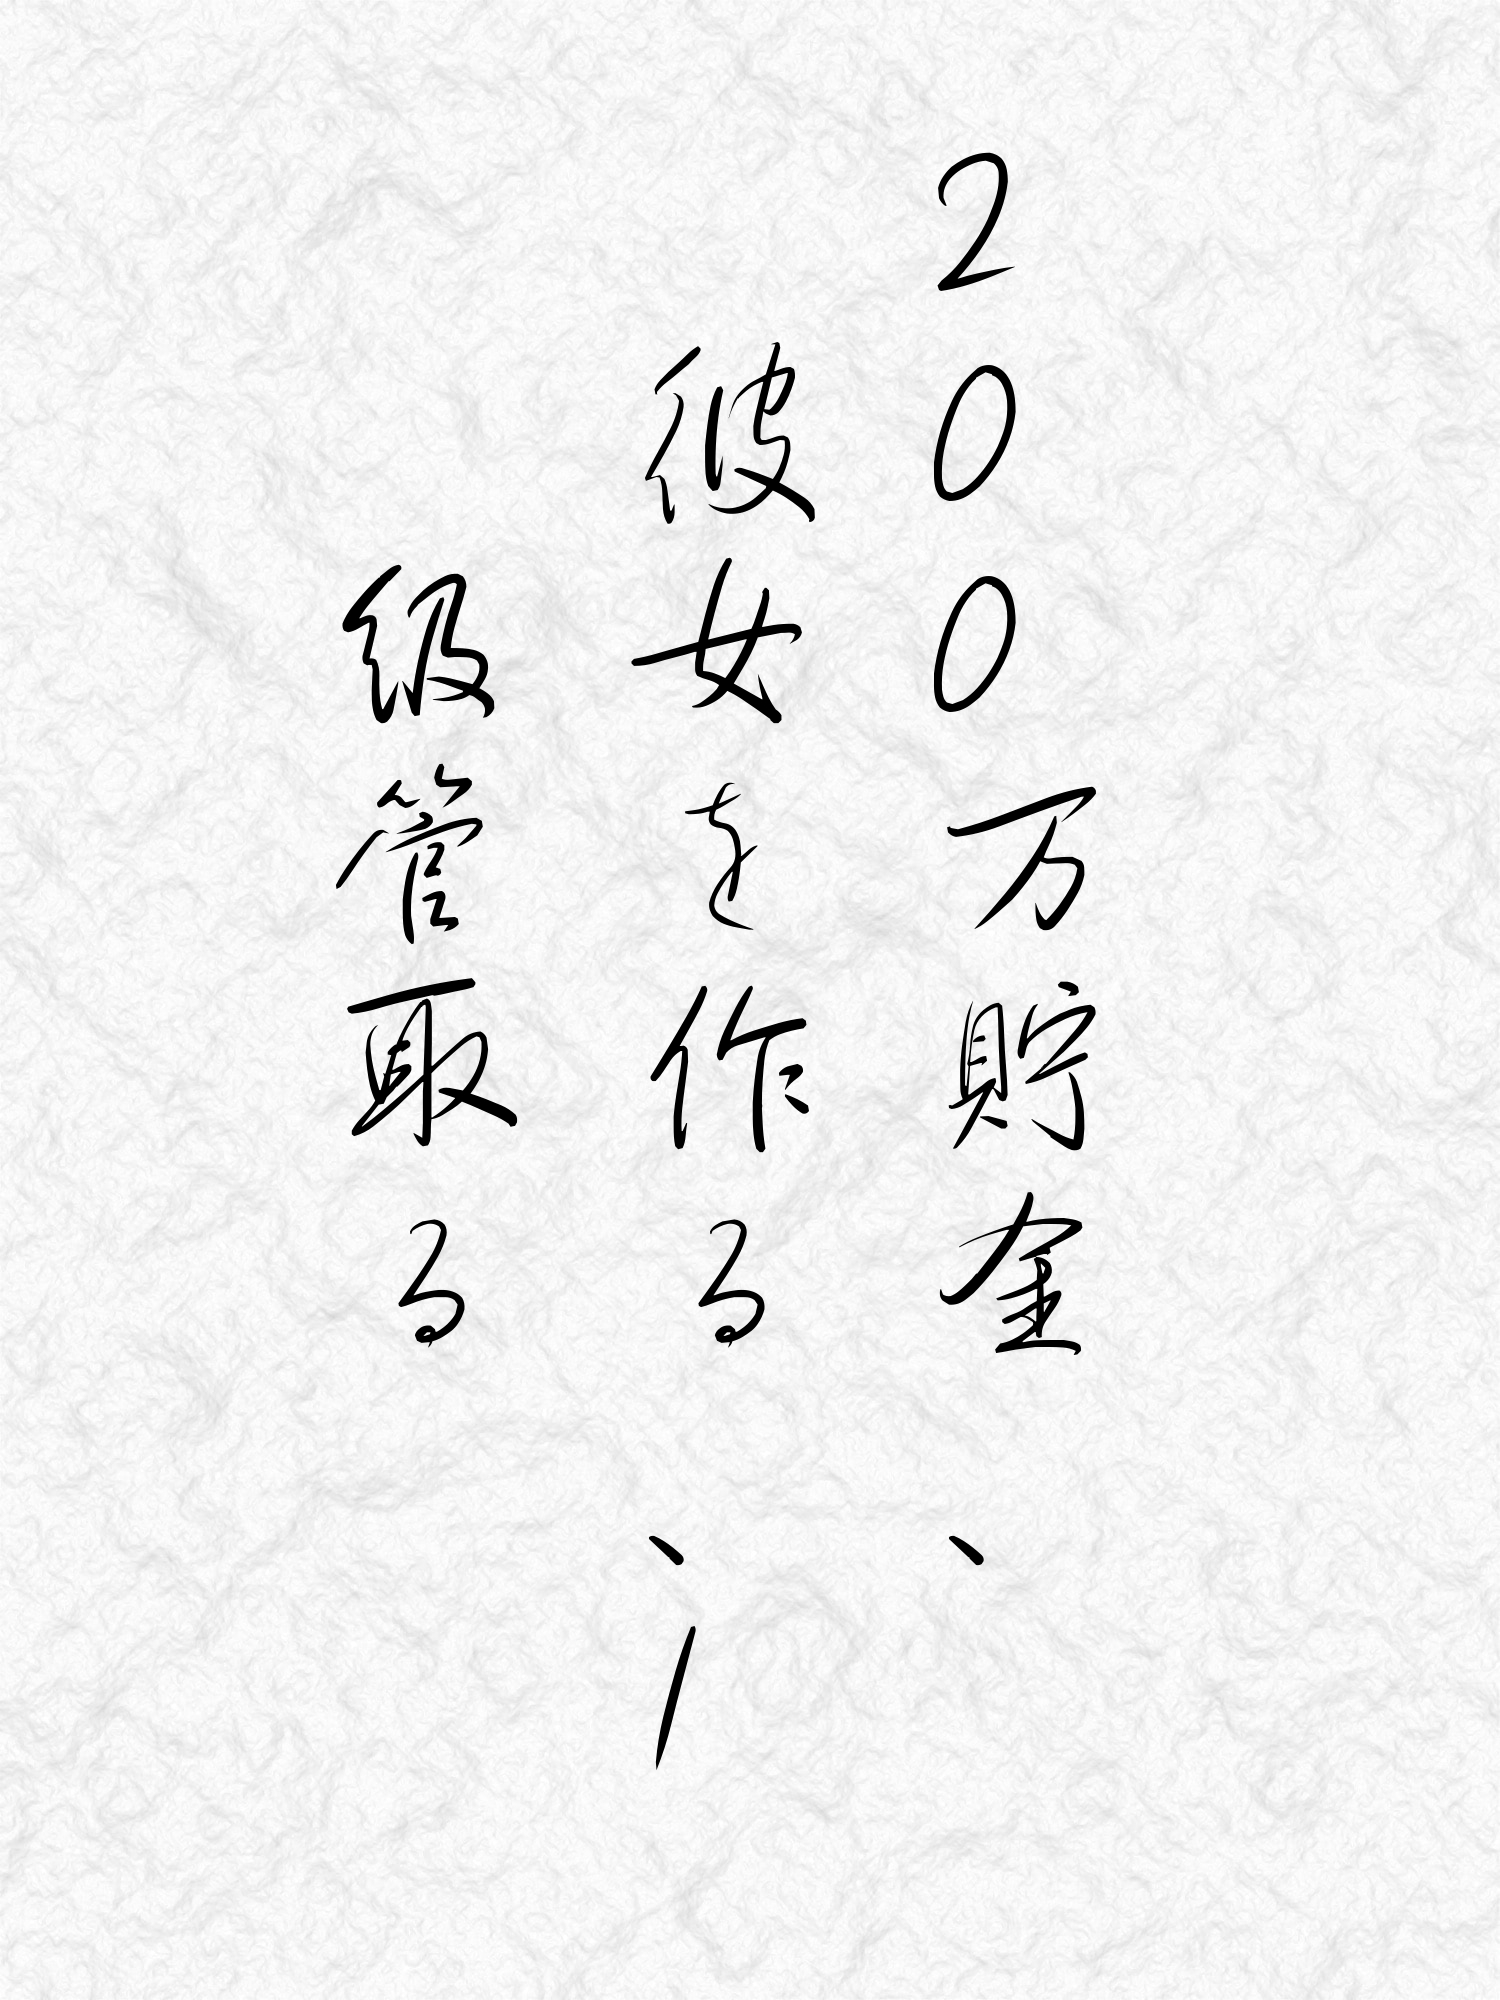 200万貯金、
彼女を作る、1
級管取る